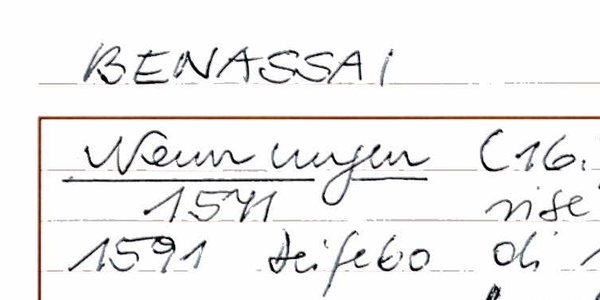 BENASSAI
Nennungen (16.
1541 rise
1591 Deifebo di 1